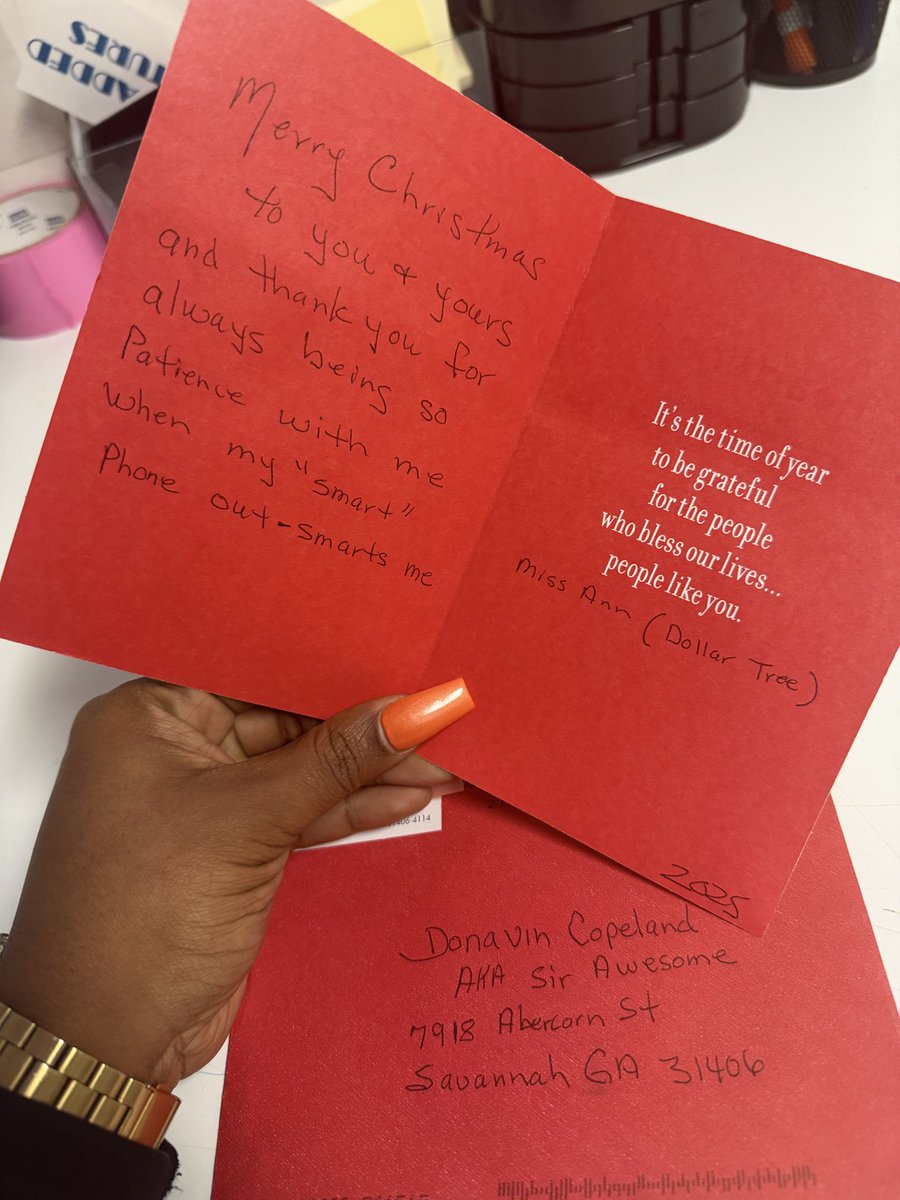 ADDED
TURES
Merry Christmas
to you & yours
and thank you for
always being so
Patience with me
when my "smart"
Phone out-smarts me
It's the time of year
to be grateful
for the people
who bless our lives...
people like you.
Miss Ann (Dollar Tree)
2025
Donavin Copeland
AKA Sir Awesome
7918 Abercorn St
Savannah GA 31406